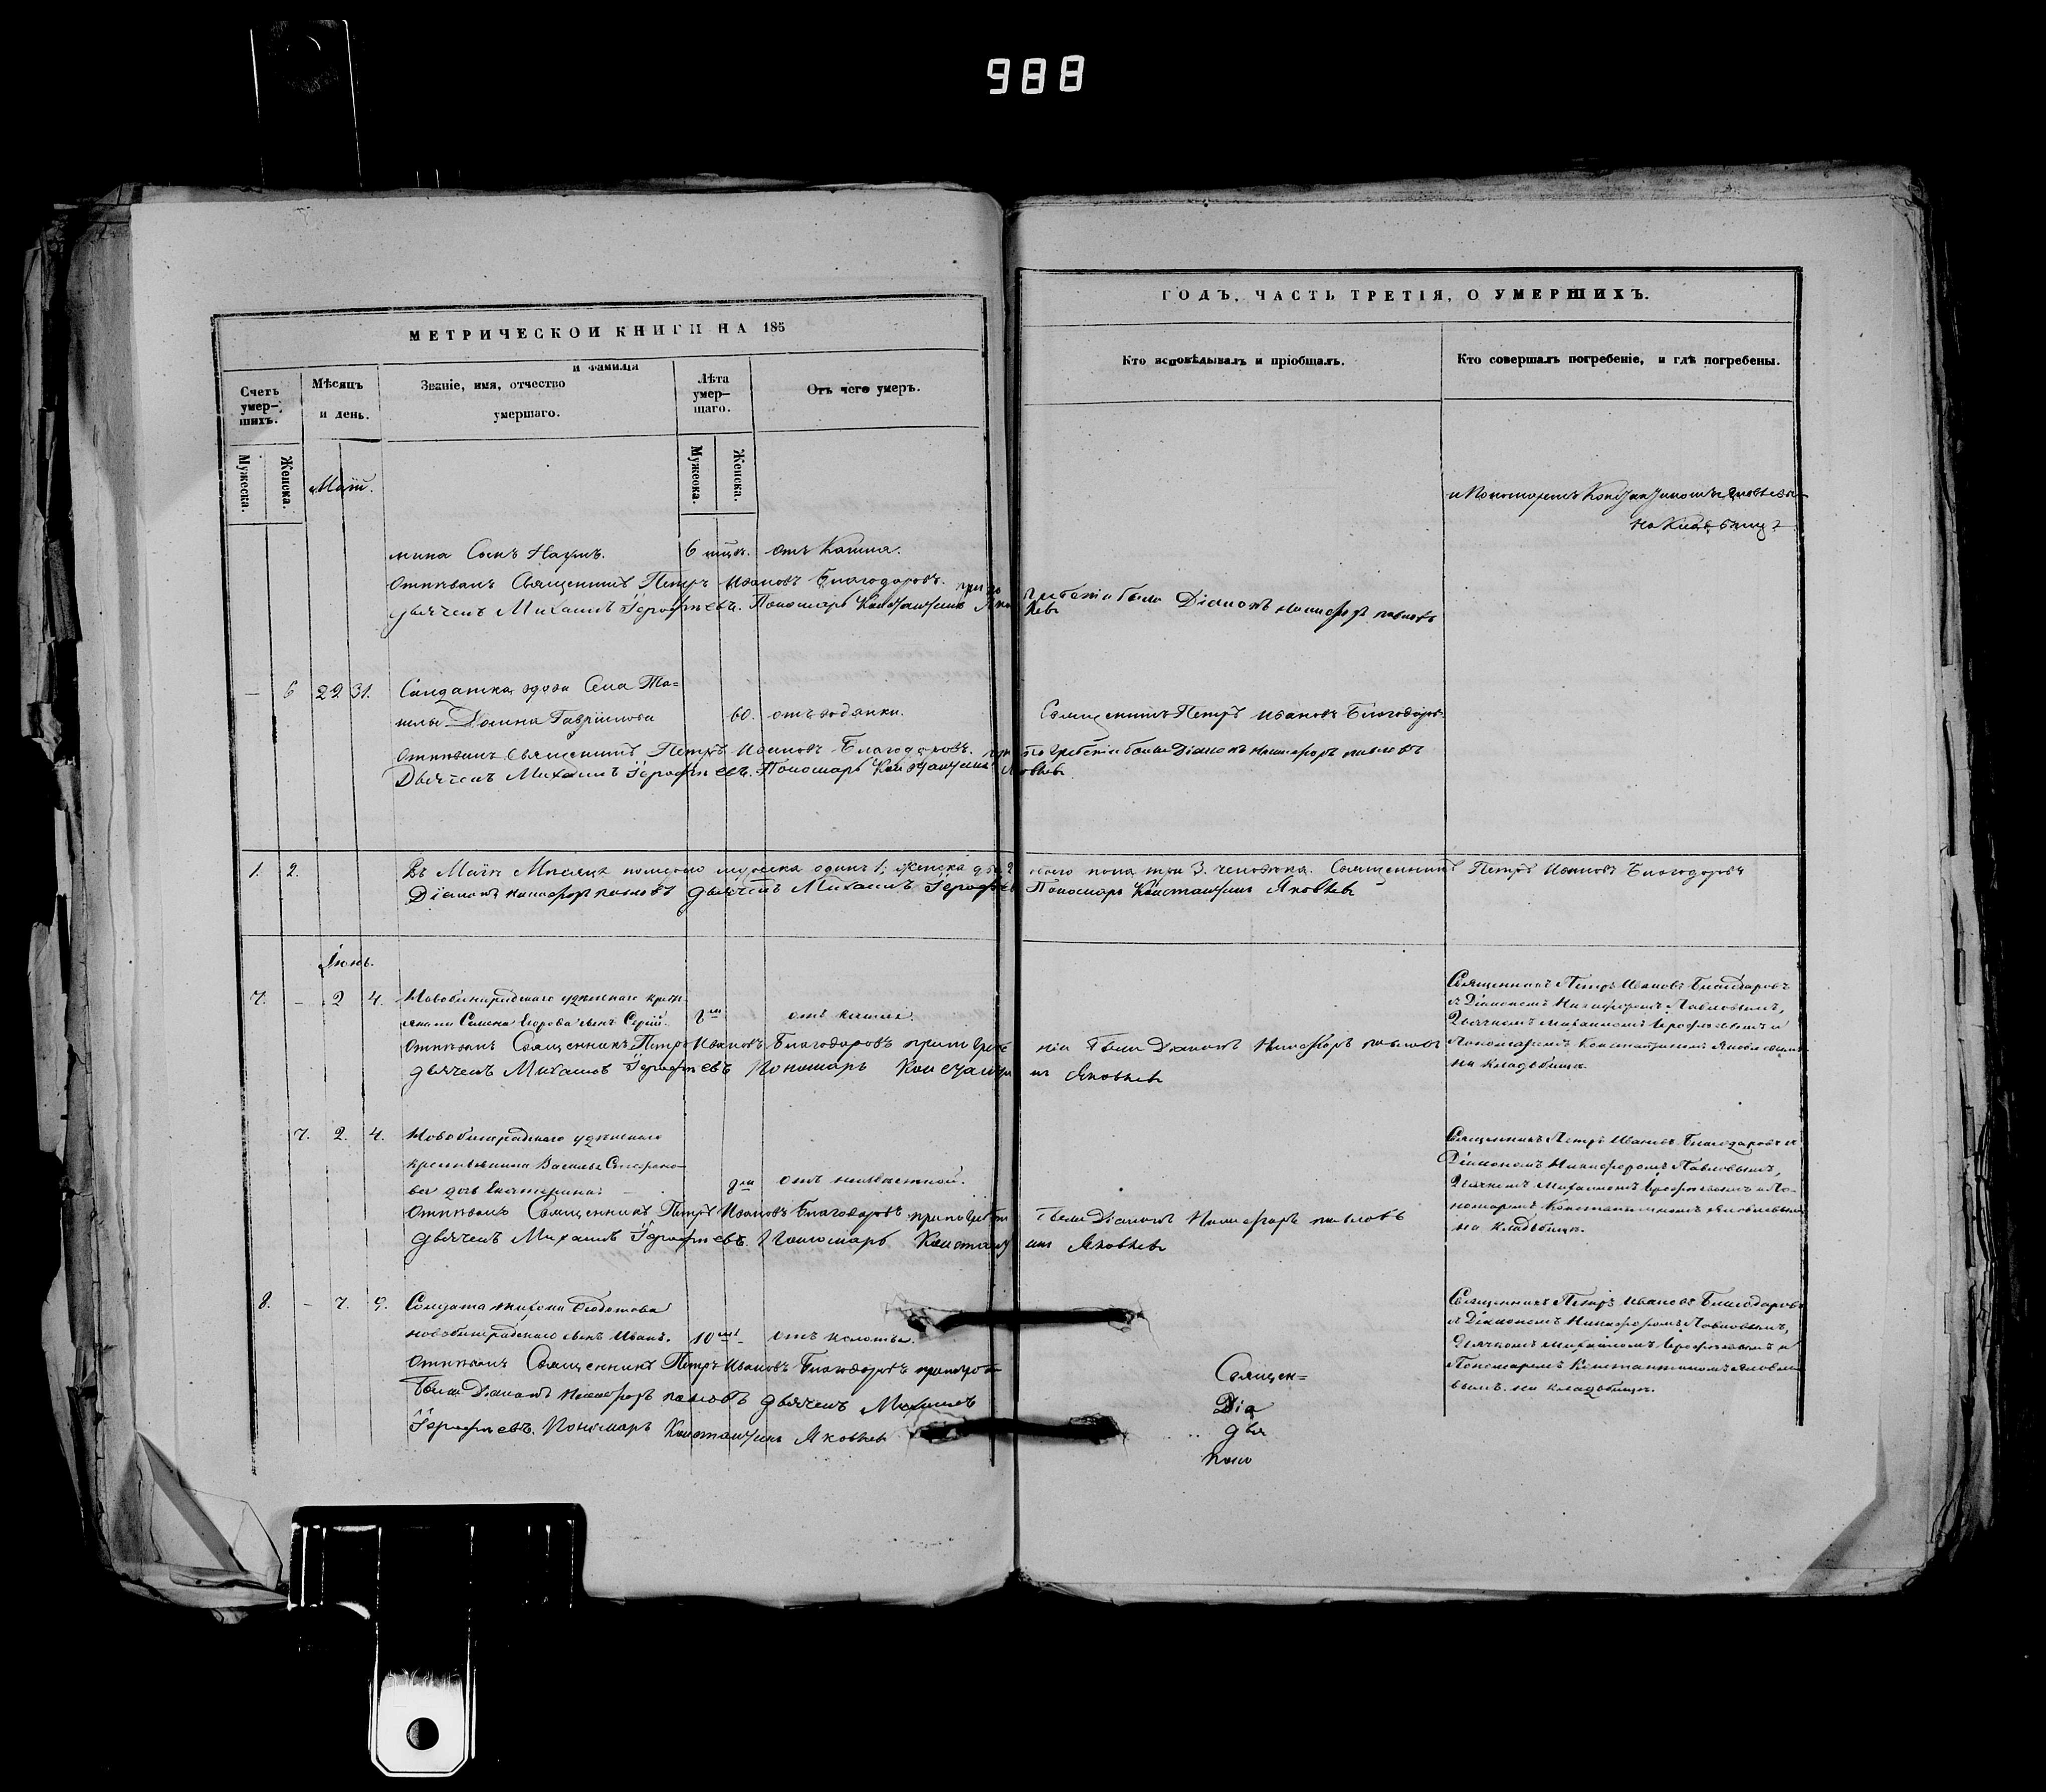 988
МЕТРИЧЕСКОЙ КНИГИ НА 185
Счетъ умер-шихъ.
Мужеска.
Женска.
Мѣсяцъ и день.
Званіе, имя, отчество и фамилія умершаго.
Лѣта умер-шаго.
Мужеска.
Женска.
Отъ чего умеръ.
ГОДЪ, ЧАСТЬ ТРЕТІЯ, О УМЕРШИХЪ.
Кто исповѣдывалъ и пріобщалъ.
Кто совершалъ погребеніе, и гдѣ погребены.
Май.
и Пономаремъ Константиномъ
на Кладбищѣ
мина Сынъ Наумъ. 6 отъ Кашля.
Отпѣвалъ Священникъ Петръ Ивановъ Благодаровъ. при по гребеніи были Діаконъ Никифоръ Павловъ
дьячекъ Михаилъ Іерофѣевъ. Пономарь Константинъ Яко влевъ
— 6 29 31. Солдатка вдова Села Та=
Гаврилова 60. отъ водянки. Священникъ Петръ Ивановъ Благодаровъ
Отпѣвалъ Священникъ Петръ Ивановъ Благодаровъ. при погребеніи были Діаконъ Никифоръ Павловъ
Дьячекъ Михаилъ Іерофѣевъ. Пономарь Константинъ Яковлевъ
1. 2. Въ Маѣ Мѣсяцѣ померло мужеска одинъ 1; женска двѣ 2 обоего пола три 3. человѣка. Священникъ Петръ Ивановъ Благодаровъ
Діаконъ Никифоръ Павловъ дьячекъ Михаилъ Іерофѣевъ Пономарь Константинъ Яковлевъ
Іюнь.
7. – 2 4. удѣльнаго крестъ-
янина Семена Егорова сынъ Сергій. отъ кашля.
Отпѣвалъ Священникъ Петръ Ивановъ Благодаровъ при погребе ніи были Діаконъ Никифоръ Павловъ
дьячекъ Михаилъ Іерофѣевъ Пономарь Константи нъ Яковлевъ
Священникъ Петръ Ивановъ Благодаровъ
съ Діакономъ Никифоромъ Павловымъ,
Дьячкомъ Михаиломъ Іерофѣевымъ и
Пономаремъ Константиномъ Яковлевымъ
на кладбищѣ.
7. 2. 4. удѣльнаго
крестьянина Василья Стефано-
ва дочь Екатерина. отъ неизвѣстной.
Отпѣвалъ Священникъ Петръ Ивановъ Благодаровъ при погребеніи были Діаконъ Никифоръ Павловъ
дьячекъ Михаилъ Іерофѣевъ. Пономарь Констант инъ Яковлевъ
Священникъ Петръ Ивановъ Благодаровъ съ
Діакономъ Никифоромъ Павловымъ,
Дьячкомъ Михаиломъ Іерофѣевымъ и По-
номаремъ Константиномъ Яковлевымъ
на кладбищѣ.
8. – 7. 9. Солдата
сынъ Иванъ. 10 отъ
Отпѣвалъ Священникъ Петръ Ивановъ Благодаровъ при погре-
были Діаконъ Никифоръ Павловъ дьячекъ Михаилъ
Іерофѣевъ. Пономарь Константинъ Яковлевъ
Священ=
Діа
дья
Поно
Священникъ Петръ Ивановъ Благодаровъ
съ Діакономъ Никифоромъ Павловымъ,
Дьячкомъ Михаиломъ Іерофѣевымъ и
Пономаремъ Константиномъ Яковле-
вымъ. на кладбищѣ.